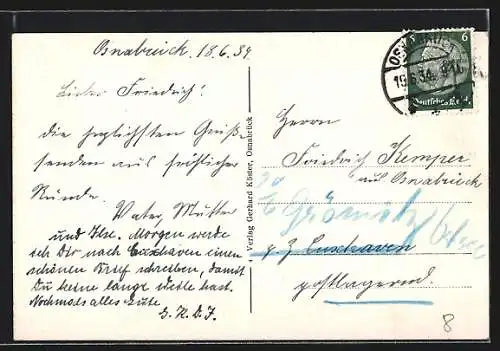 Osnabrück, 18.6.34.
Lieber Friedrich!
die herzlichsten Grüße
senden aus fröhlicher
Runde.
Vater, Mutter
und Ilse. Morgen werde
ich Dir nach Cuxhaven einen
schönen Brief schreiben, damit
Du keine lange Weile hast.
Nochmals alles Gute.
Verlag Gerhard Köster, Osnabrück
6
OSNABRÜCK
19.6.34.
Deutsches Reich
Herrn
Friedrich Kemper
aus Osnabrück
Grömitz
z. Z. Cuxhaven
postlagernd.
8